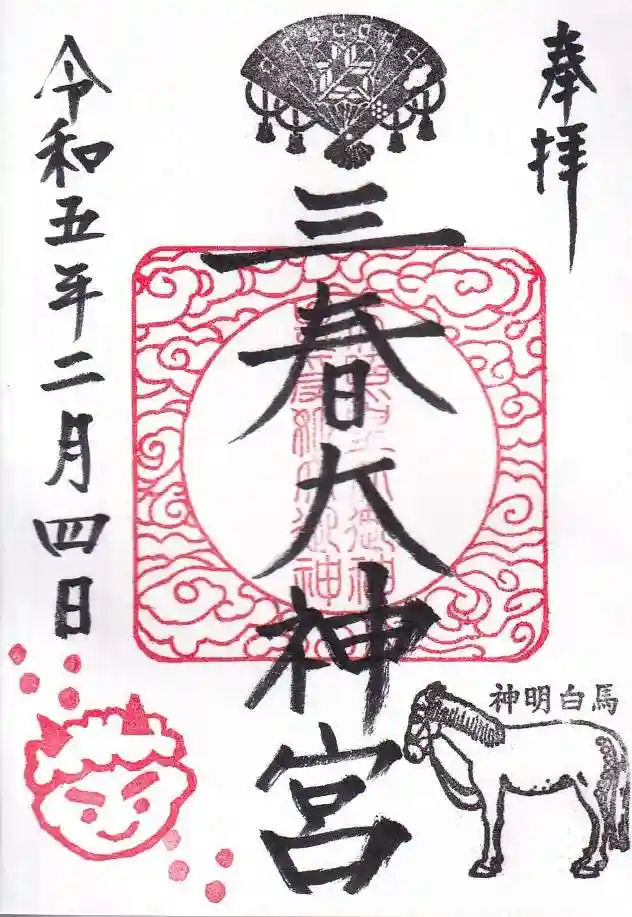 奉拝
三春大神宮
神明白馬
令和五年二月四日